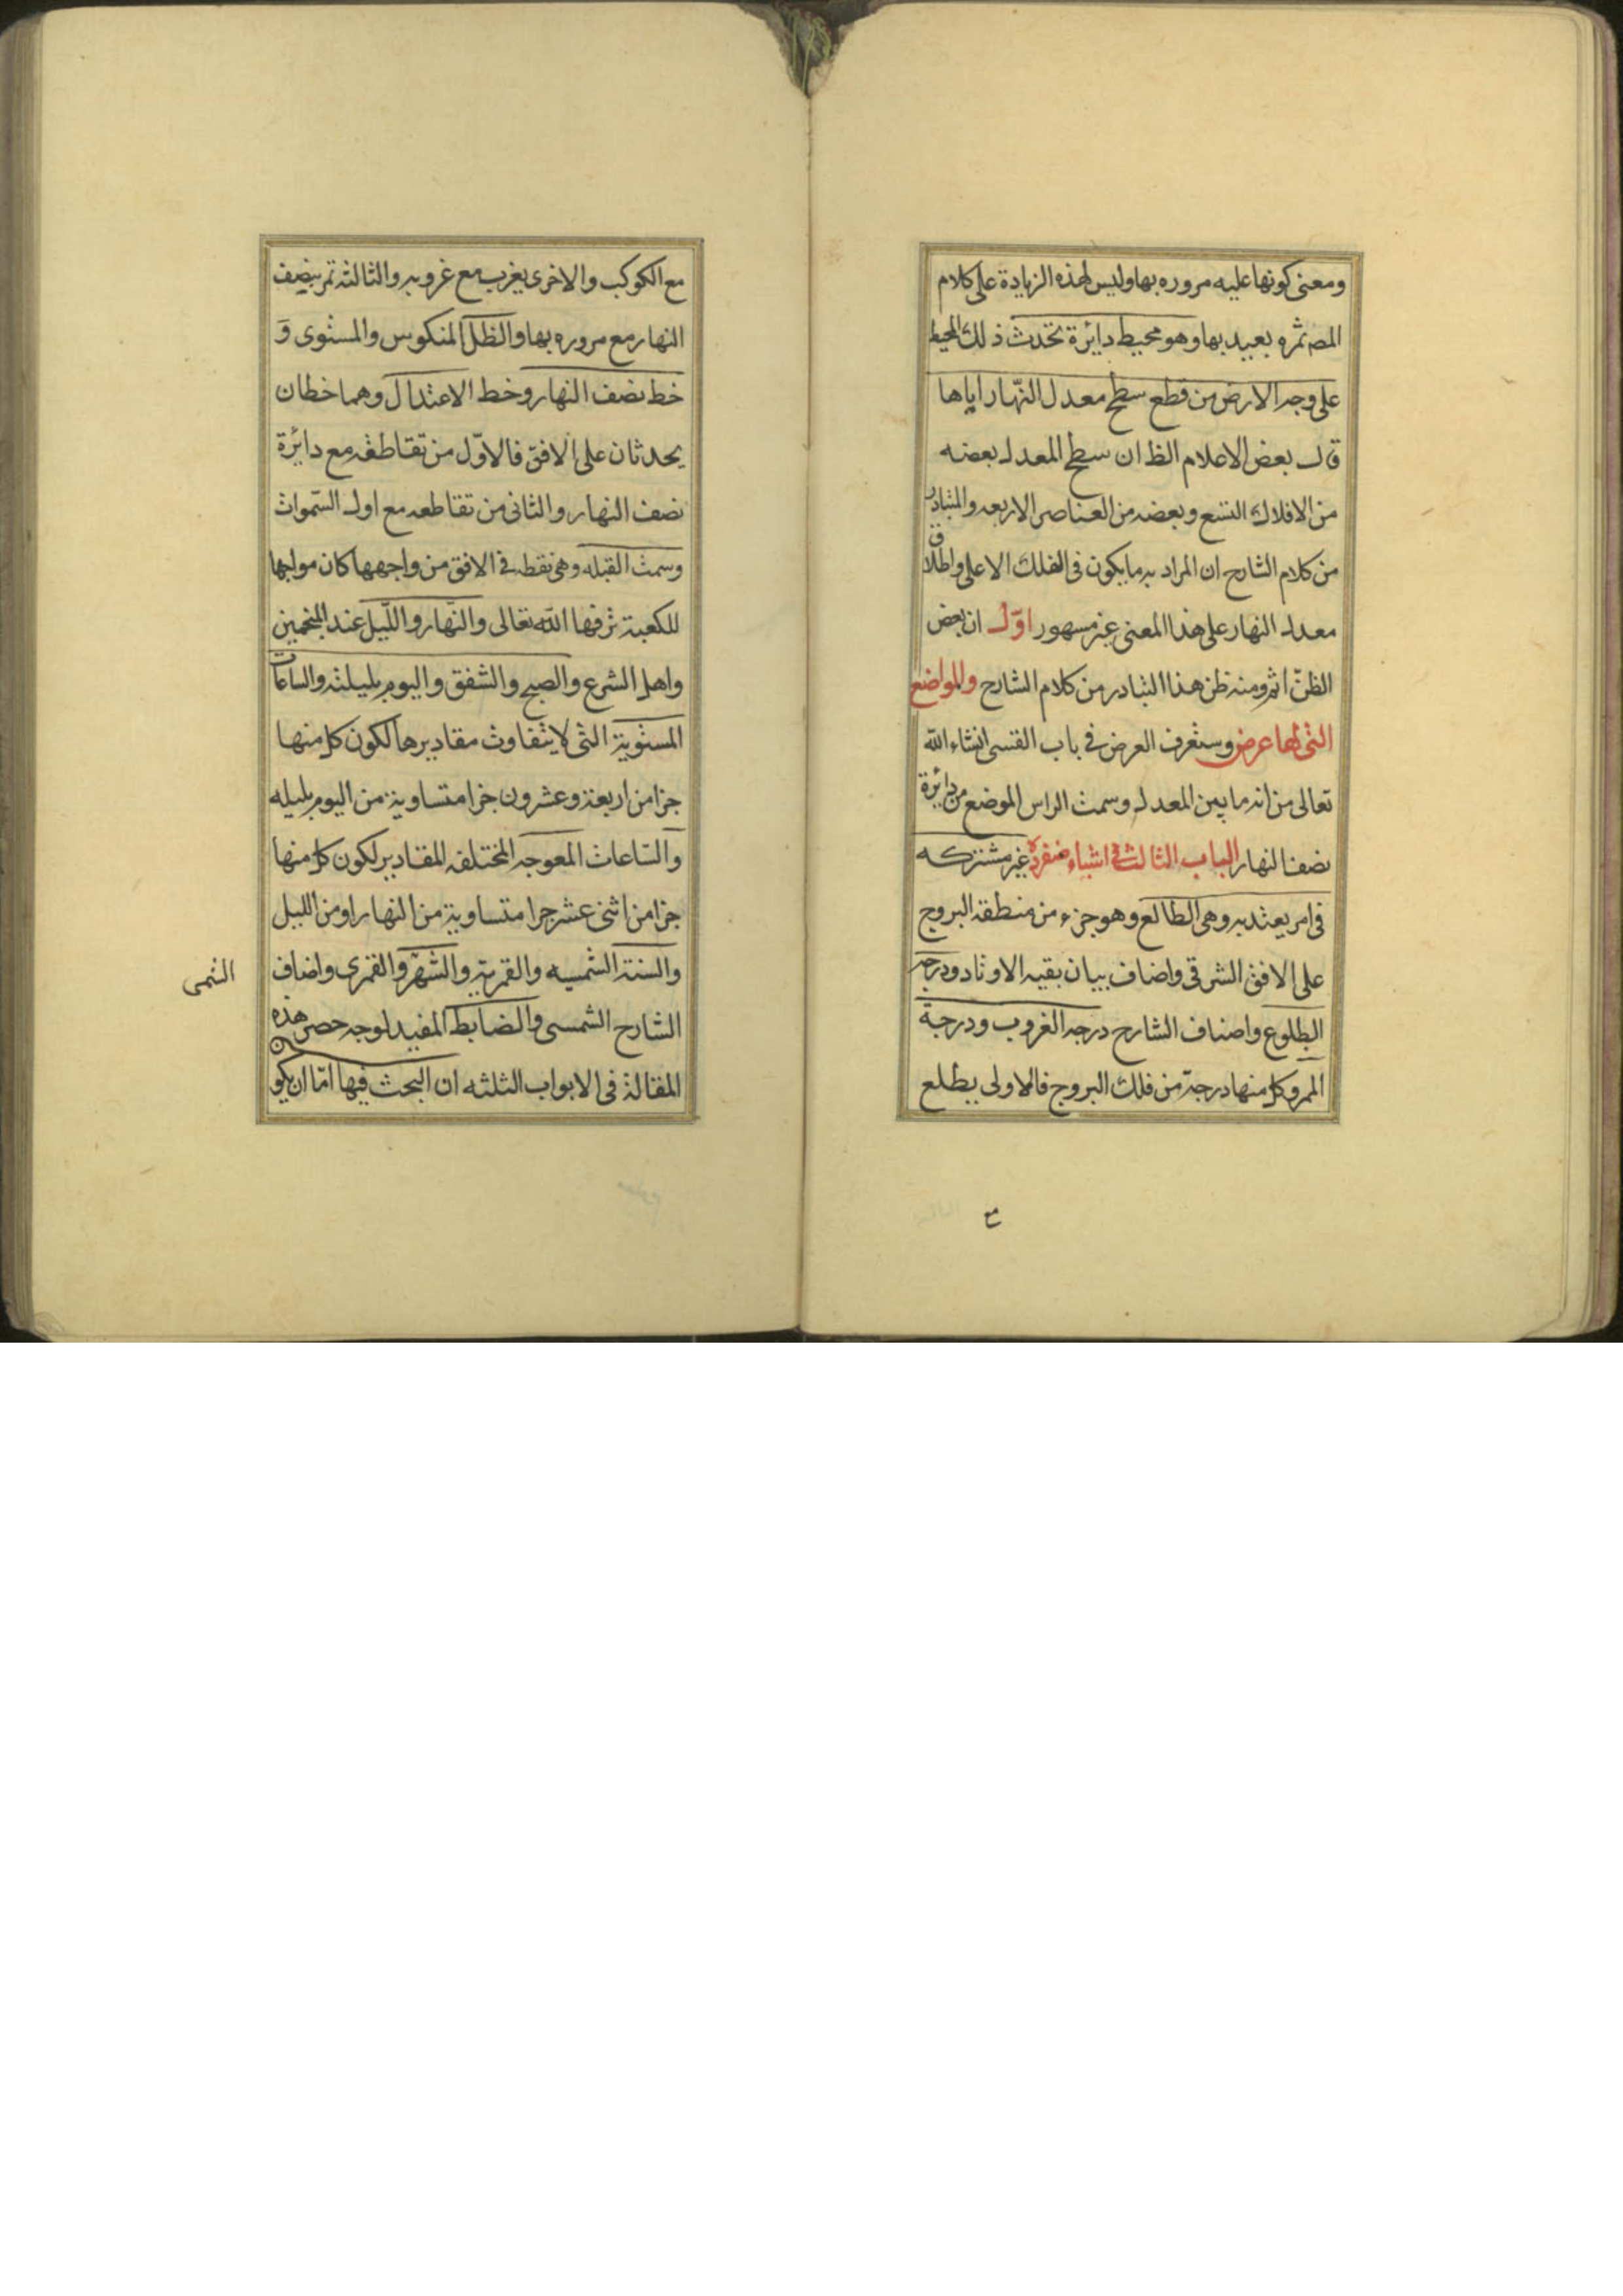 ومعنى كونها عليه مروره بها وليس لهذه الزيادة على كلام
المصـ ثمره يعيد بها وهو محيط دايرة تحدث ذلك المحيط
على وجه الارض من قطع سطح معدل النهار اياها
قال بعض الاعلام الظ ان سطح المعدل بعضه
من الافلاك التسع وبعضه من العناصر الاربعه والمتبادر
من كلام الشارح ان المراد به ما يكون فى الفلك الاعلى واطلاق
معدل النهار على هذا المعنى غير مسهور اوّل ان بعض
الظنّ اثم ومنه ظن هذا التبادر من كلام الشارح والمواضع
التى لها عرض وستعرف العرض فى باب القسى انشاء الله
تعالى من انه ما بين المعدل وسمت الراس الموضع من دائرة
نصف النهار الباب الثالث فى اشياء منفردة غير مشتركه
فى امر يعتد به وهى الطالع وهو جزء من منطقة البروج
على الافق الشرقى واضاف بيان بقيه الاوتاد ودرجه
الطلوع واضاف الشارح درجه الغروب ودرجة
الممر وكل منها درجة من فلك البروج فالاولى يطلع
مع
مع الكوكب والاخرى يغرب مع غروبه والثالثة تمر بنصف
النهار مع مروره بها والظل المنكوس والمستوى وَ
خط نصف النهار وخط الاعتدال وهما خطان
يحدثان على الافق فالاوّل من تقاطعه مع دائرة
نصف النهار والثانى من تقاطعه مع اول السّموات
وسمت القبله وهى نقطه فى الافق من واجهها كان مواجها
للكعبة شرفها الله تعالى والنهار واللّيل عند المنجمين
واهل الشرع والصبح والشفق واليوم بليلته والساعات
المستوية التى لا يتفاوت مقاديرها لكون كل منها
جزا من اربعة وعشرون جزا متساوية من اليوم بليله
والسّاعات المعوجه المختلفه المقادير لكون كل منها
جزا من اثنى عشر جزا متساوية من النهار او من الليل
والسنة الشمسيه والقمرية والشّهر والقمرى واضاف
الشمسى
الشارح الشمسى والضابط المفيد لوجه حصر هذه
المقالة فى الابواب الثلثه ان البحث فيها امّا ان يكون